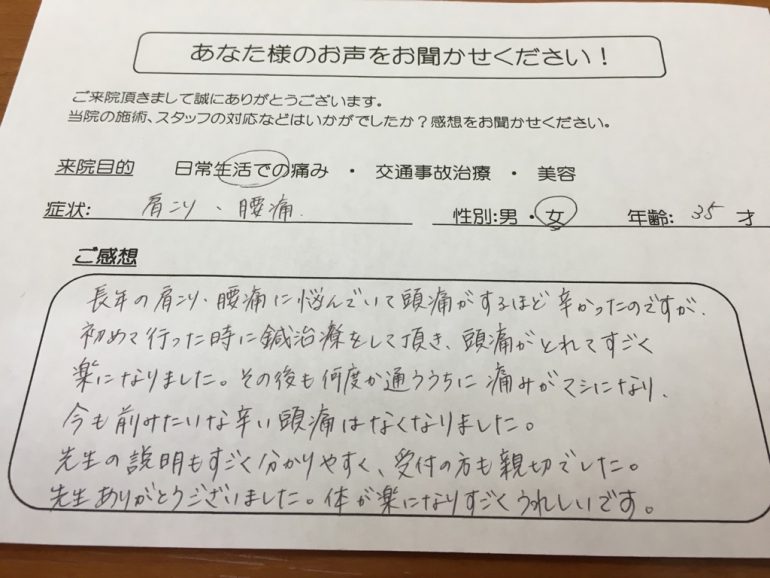 あなた様のお声をお聞かせください！
ご来院頂きまして誠にありがとうございます。
当院の施術、スタッフの対応などはいかがでしたか？感想をお聞かせください。
来院目的 日常生活での痛み ・ 交通事故治療 ・ 美容
症状: 肩こり・腰痛. 性別:男・女 年齢: 35 才
ご感想
長年の肩こり、腰痛に悩んでいて頭痛がするほど辛かったのですが、
初めて行った時に鍼治療をして頂き、頭痛がとれてすごく
楽になりました。その後も何度か通ううちに痛みがマシになり、
今も前みたいな辛い頭痛はなくなりました。
先生の説明もすごく分かりやすく、受付の方も親切でした。
先生ありがとうございました。体が楽になりすごくうれしいです。